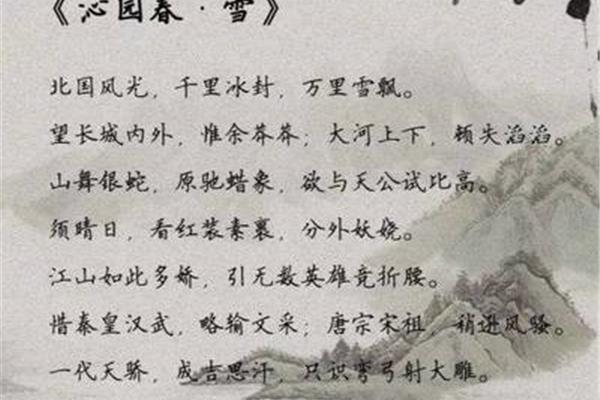 《沁园春·雪》
北国风光，千里冰封，万里雪飘。
望长城内外，惟余莽莽；大河上下，顿失滔滔。
山舞银蛇，原驰蜡象，欲与天公试比高。
须晴日，看红装素裹，分外妖娆。
江山如此多娇，引无数英雄竞折腰。
惜秦皇汉武，略输文采；唐宗宋祖，稍逊风骚。
一代天骄，成吉思汗，只识弯弓射大雕。